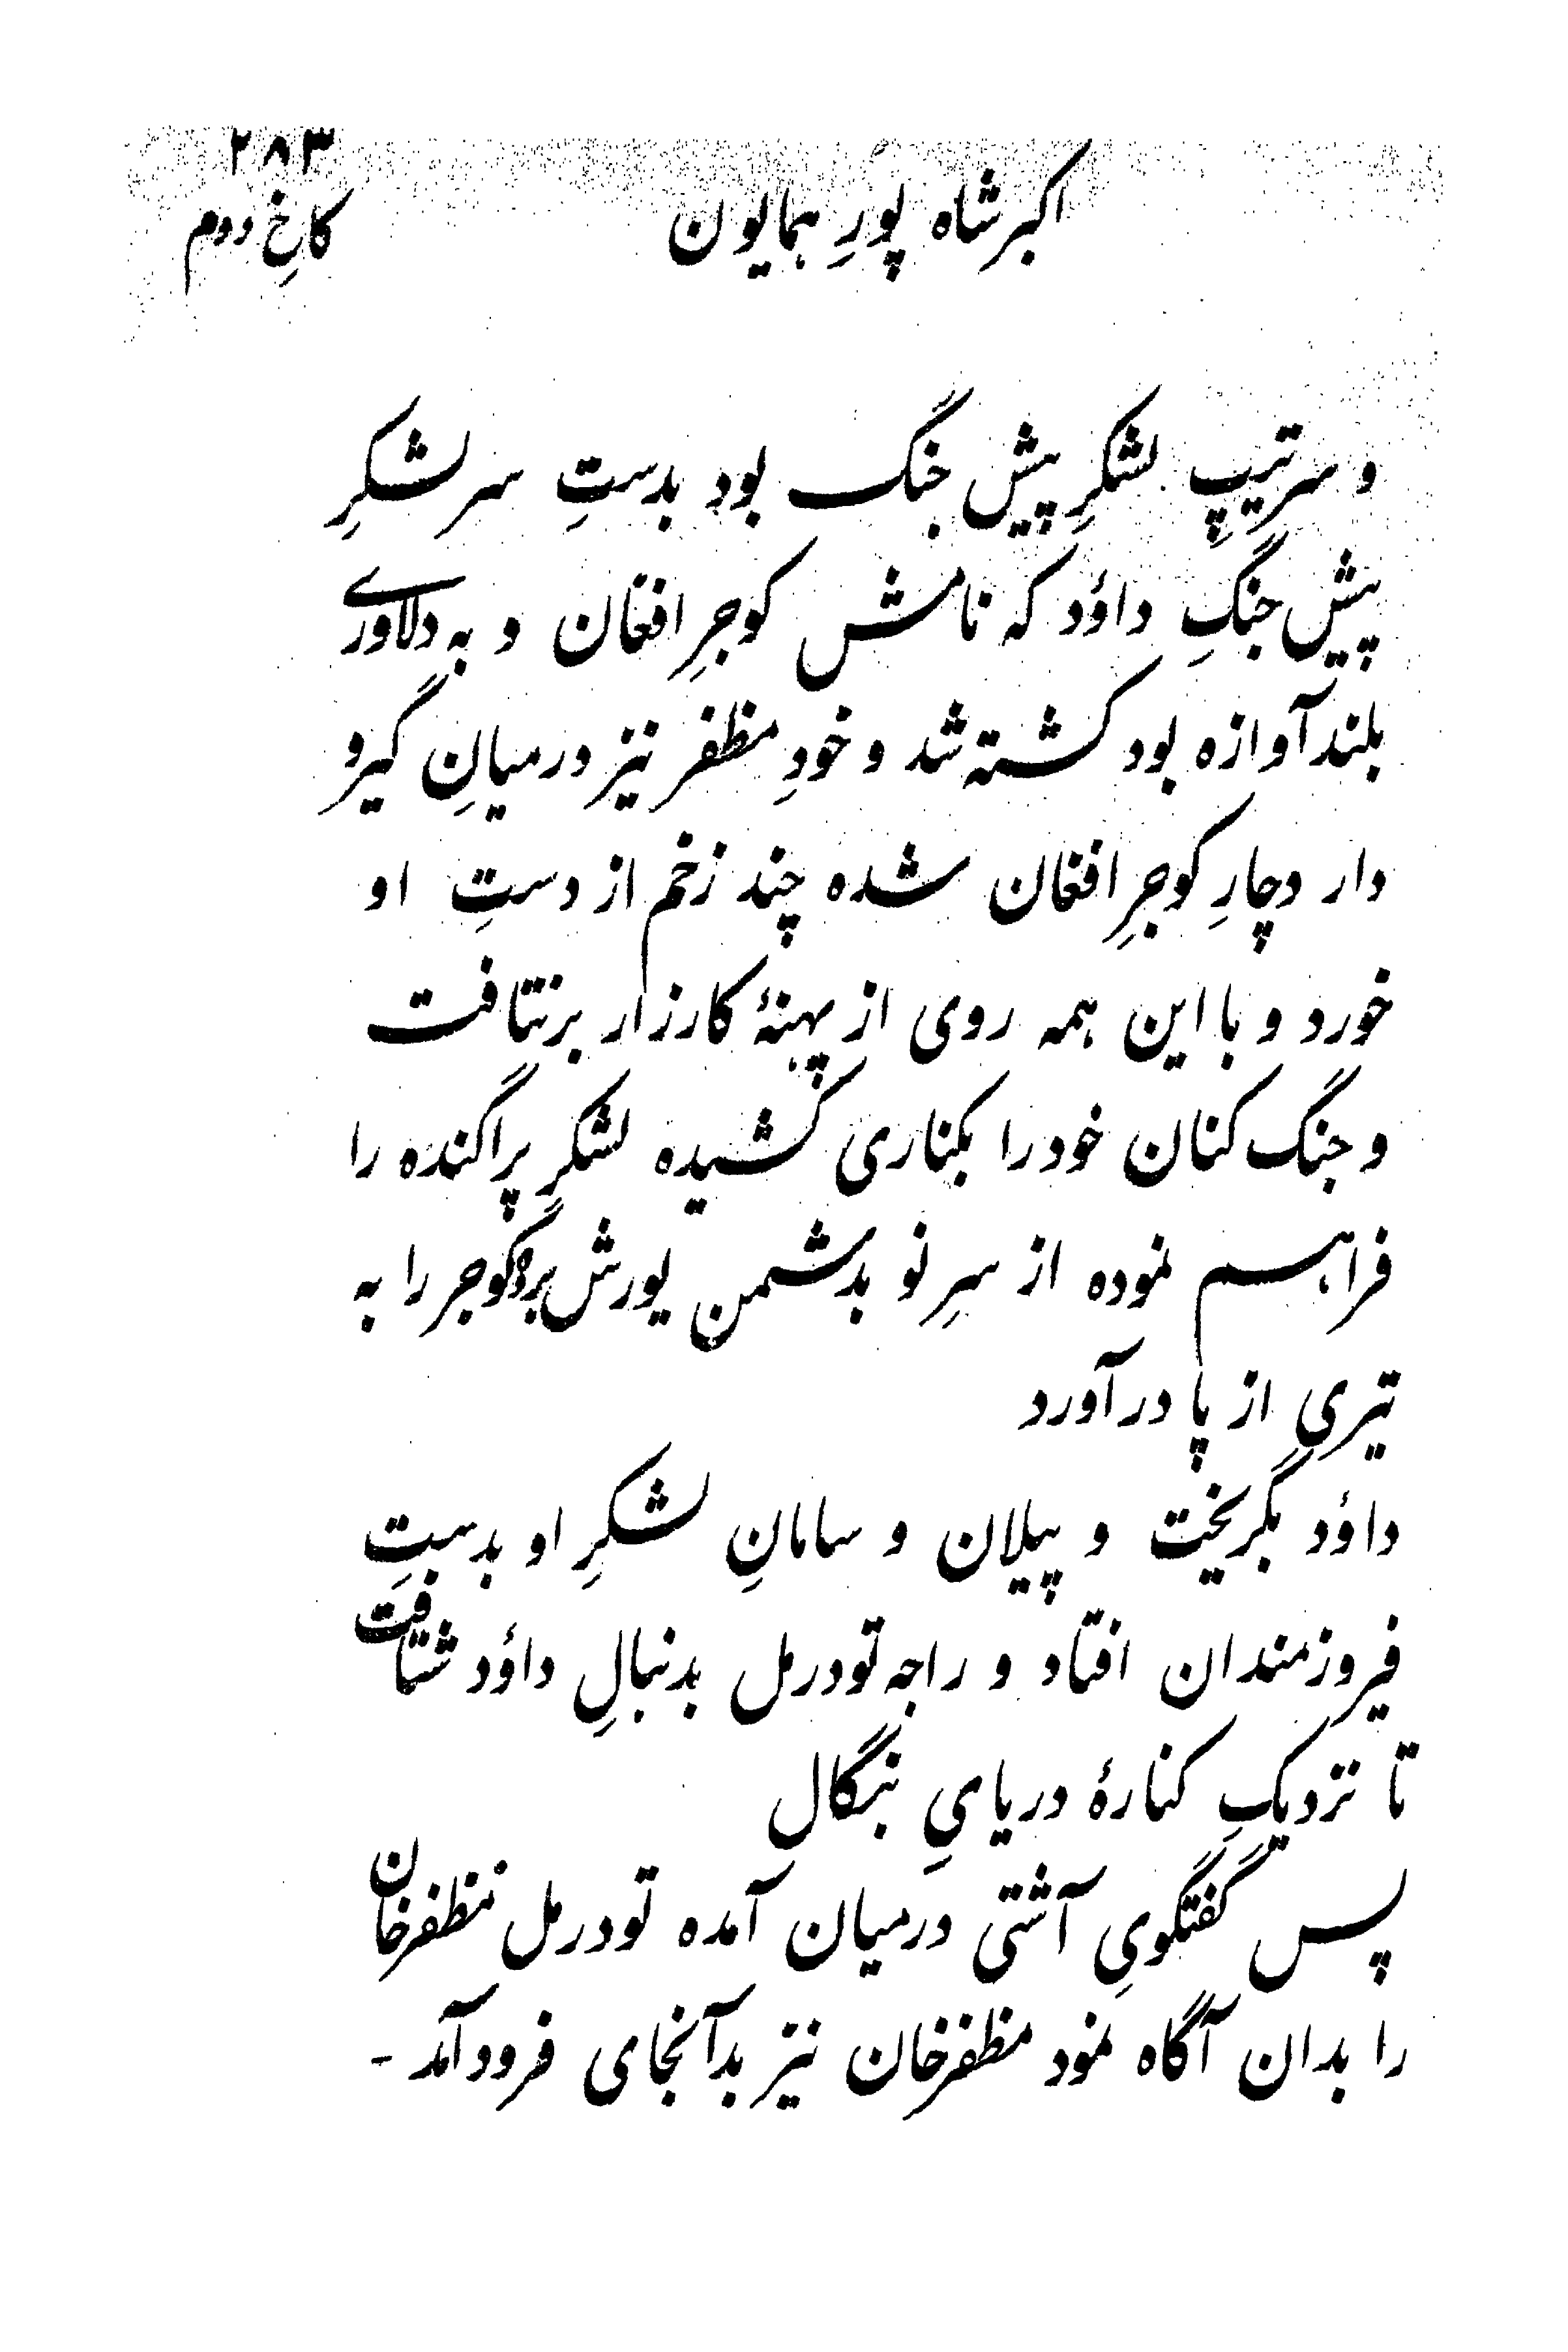 ۲۸۳
اکبرشاه پورِ همایون کاخِ دوم
و سرتیپِ لشکرِ پیش جنگ بود بدستِ سرلشکرِ
پیش جنگِ داؤد که نامش کوجرِ افغان و به دلاوری
بلندآوازه بود کشته شد و خودِ مظفر نیز درمیانِ گیرو
دار دچارِ کوجرِ افغان شده چند زخم از دستِ او
خورد و با این همه روی از پهنهٔ کارزار برنتافت
و جنگ کنان خود را بکناری کشیده لشکرِ پراگنده را
فراهم نموده از سرِ نو بدشمن یورش برد و کوجر را به
تیری از پا درآورد
داؤد بگریخت و پیلان و سامانِ لشکرِ او بدستِ
فیروزمندان افتاد و راجه تودرمل بدنبالِ داؤد شتافت
تا نزدیکِ کنارهٔ دریایِ بنگال
پس گفتگویِ آشتی درمیان آمده تودرمل مظفرخان
را بدان آگاه نمود مظفرخان نیز بدآنجای فرود آمد -